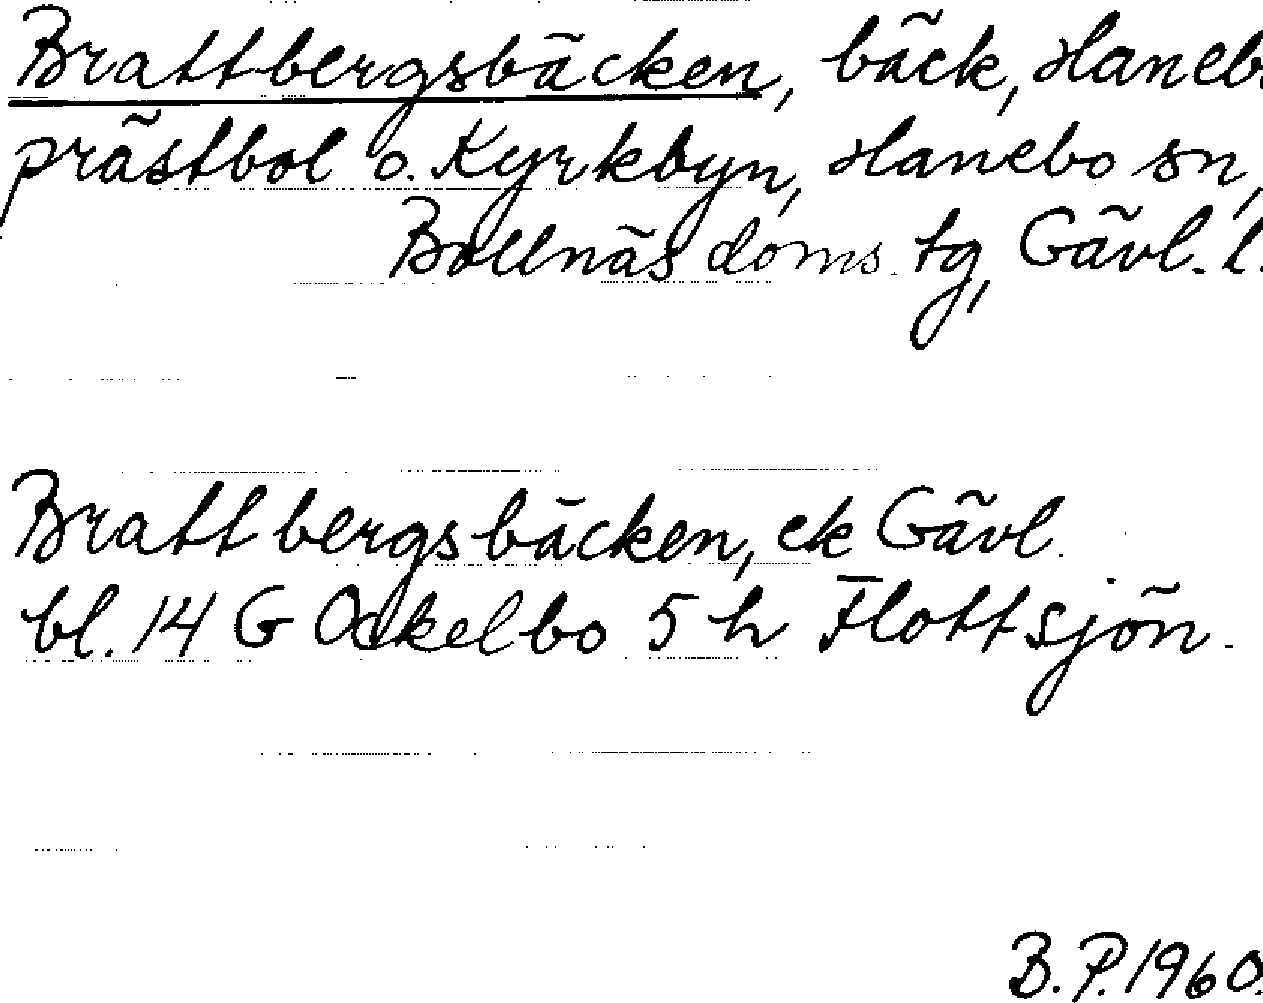 Brattbergsbäcken, bäck, Hanebo
prästbol o. Kyrkbyn, Hanebo sn,
Bollnäs doms. tg, Gävl. l.
Brattbergsbäcken, ek Gävl.
bl. 14 G Ockelbo 5 h Flottsjön.
B. P. 1960.